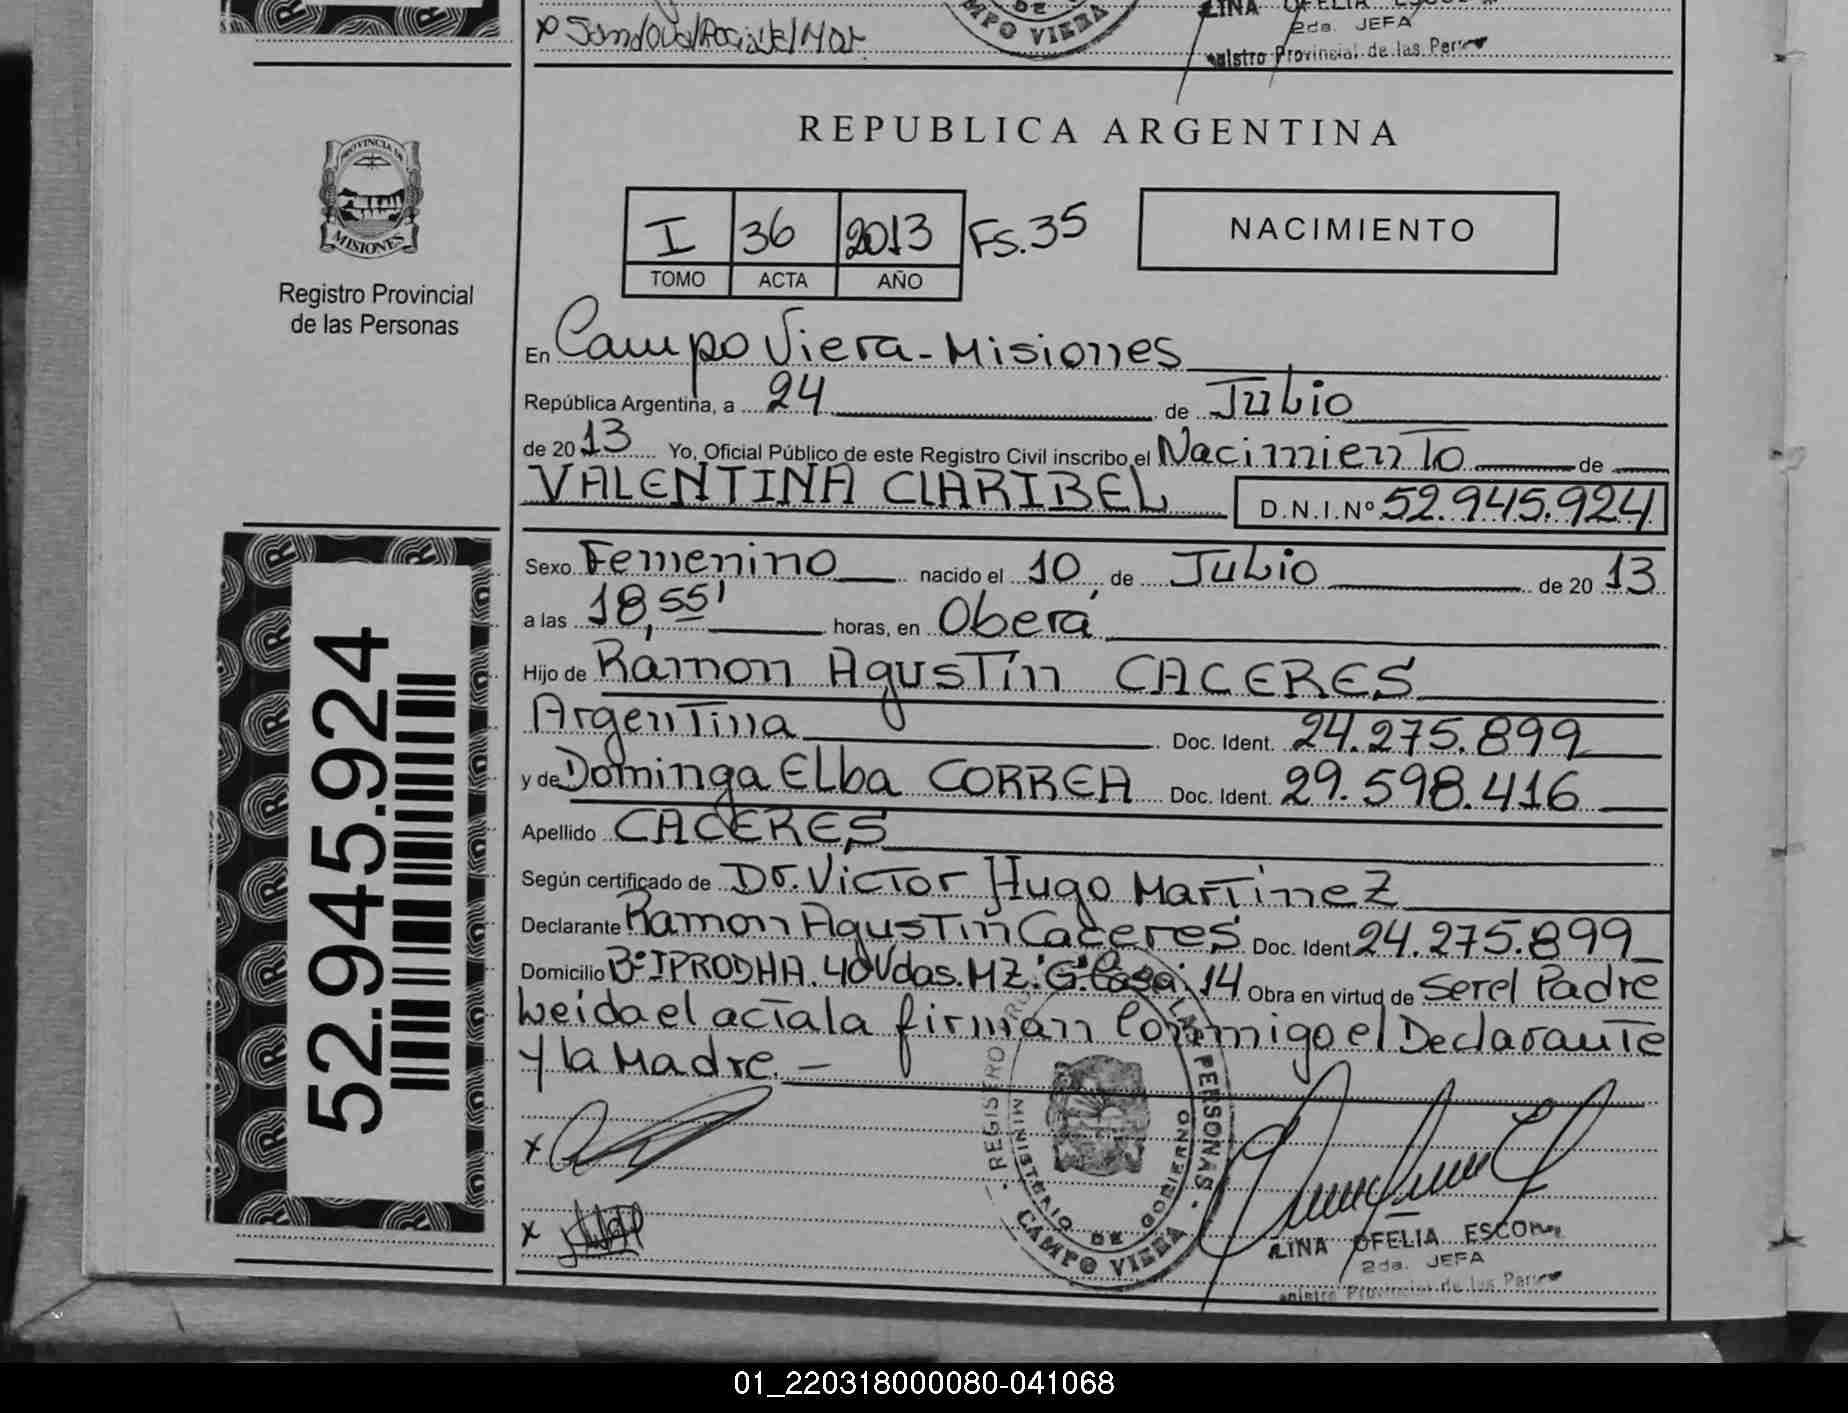 x Sandoval Rocio del Mar
DE
CAMPO VIERA
LINA OFELIA
2da. JEFA
Provincial de las
REPUBLICA ARGENTINA
PROVINCIA DE
MISIONES
Registro Provincial
de las Personas
I 36 2013 Fs.35
TOMO ACTA AÑO
NACIMIENTO
En Campo Viera-Misiones
República Argentina, a 24 de Julio
de 2013 Yo, Oficial Público de este Registro Civil inscribo el Nacimiento de
VALENTINA CLARIBEL D.N.I.Nº 52.945.924
Sexo Femenino nacido el 10 de Julio de 2013
a las 18,55' horas, en Oberá
Hijo de Ramon Agustín CACERES
Argentina Doc. Ident. 24.275.899
y de Dominga Elba CORREA Doc. Ident. 29.598.416
Apellido CACERES
Según certificado de Dr. Victor Hugo Martinez
Declarante Ramon Agustin Caceres Doc. Ident 24.275.899
Domicilio Bº IPRODHA. 40 Vdas. MZ. "G" Casa 14 Obra en virtud de Ser el Padre
Leida el acta la firman Conmigo el Declarante
y la Madre.-
52.945.924
x
x
REGISTRO LAS PERSONAS
MINISTERIO DE GOBIERNO
CAMPO VIERA
LINA OFELIA
2da. JEFA
Provincial de las
01_220318000080-041068